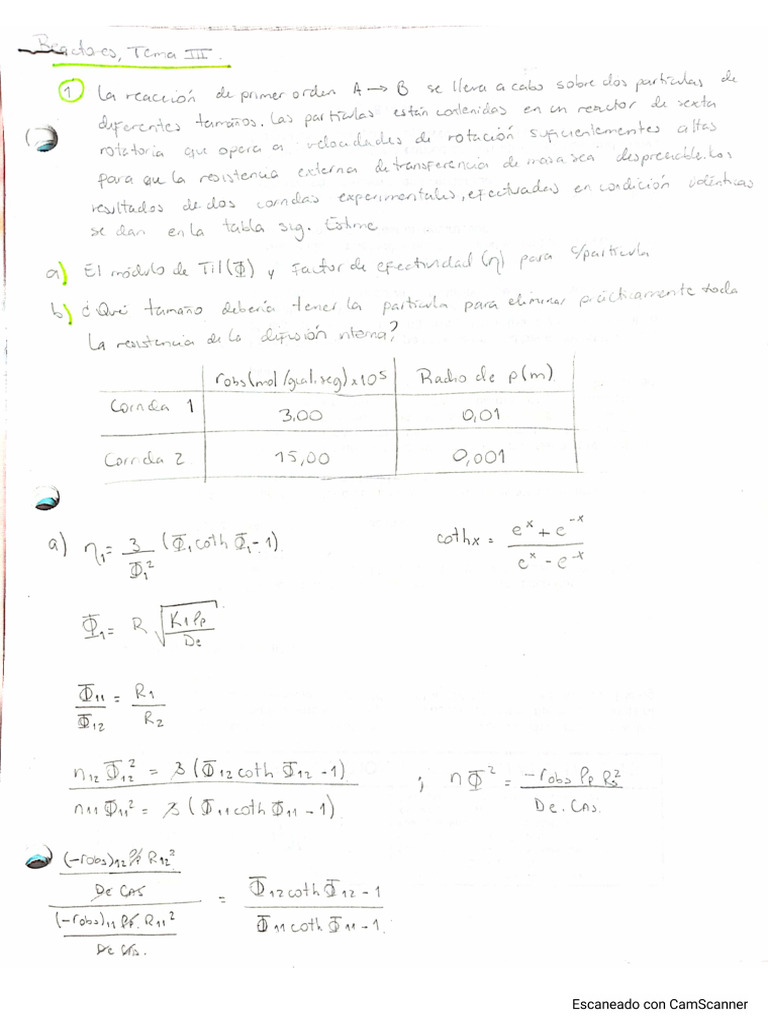 Reactores, Tema III.
1) La reacción de primer orden A → B se lleva a cabo sobre dos partículas de
diferentes tamaños. Las partículas están contenidas en un reactor de sexta
rotatoria que opera a velocidades de rotación suficientementes altas
para que la resistencia externa de transferencia de masa sea despreciable. Los
resultados de dos corridas experimentales, efectuadas en condición
se dan en la tabla sig. Estime
a) El módulo de Til (Φ) y Factor de efectividad (η) para c/partícula
b) ¿Qué tamaño debería tener la partícula para eliminar prácticamente toda
La resistencia de la difusión interna?
robs (mol/gcat.seg) x10⁵ Radio de p (m)
Corrida 1 3,00 0,01
Corrida 2 15,00 0,001
a) η₁ = 3/Φ₁² (Φ₁ coth Φ₁ - 1) coth x = (eˣ + e⁻ˣ)/(eˣ - e⁻ˣ)
Φ₁ = R √(K₁ρp/De)
Φ₁₁/Φ₁₂ = R₁/R₂
n₁₂ Φ₁₂² = 3 (Φ₁₂ coth Φ₁₂ - 1)
n₁₁ Φ₁₁² = 3 (Φ₁₁ coth Φ₁₁ - 1) ; nΦ² = -robs ρp R²/De. CAS.
((-robs)₁₂ ρp R₁₂²/De CAS)/((-robs)₁₁ ρp. R₁₁²/De CAs.) = (Φ₁₂ coth Φ₁₂ - 1)/(Φ₁₁ coth Φ₁₁ - 1.)
Escaneado con CamScanner